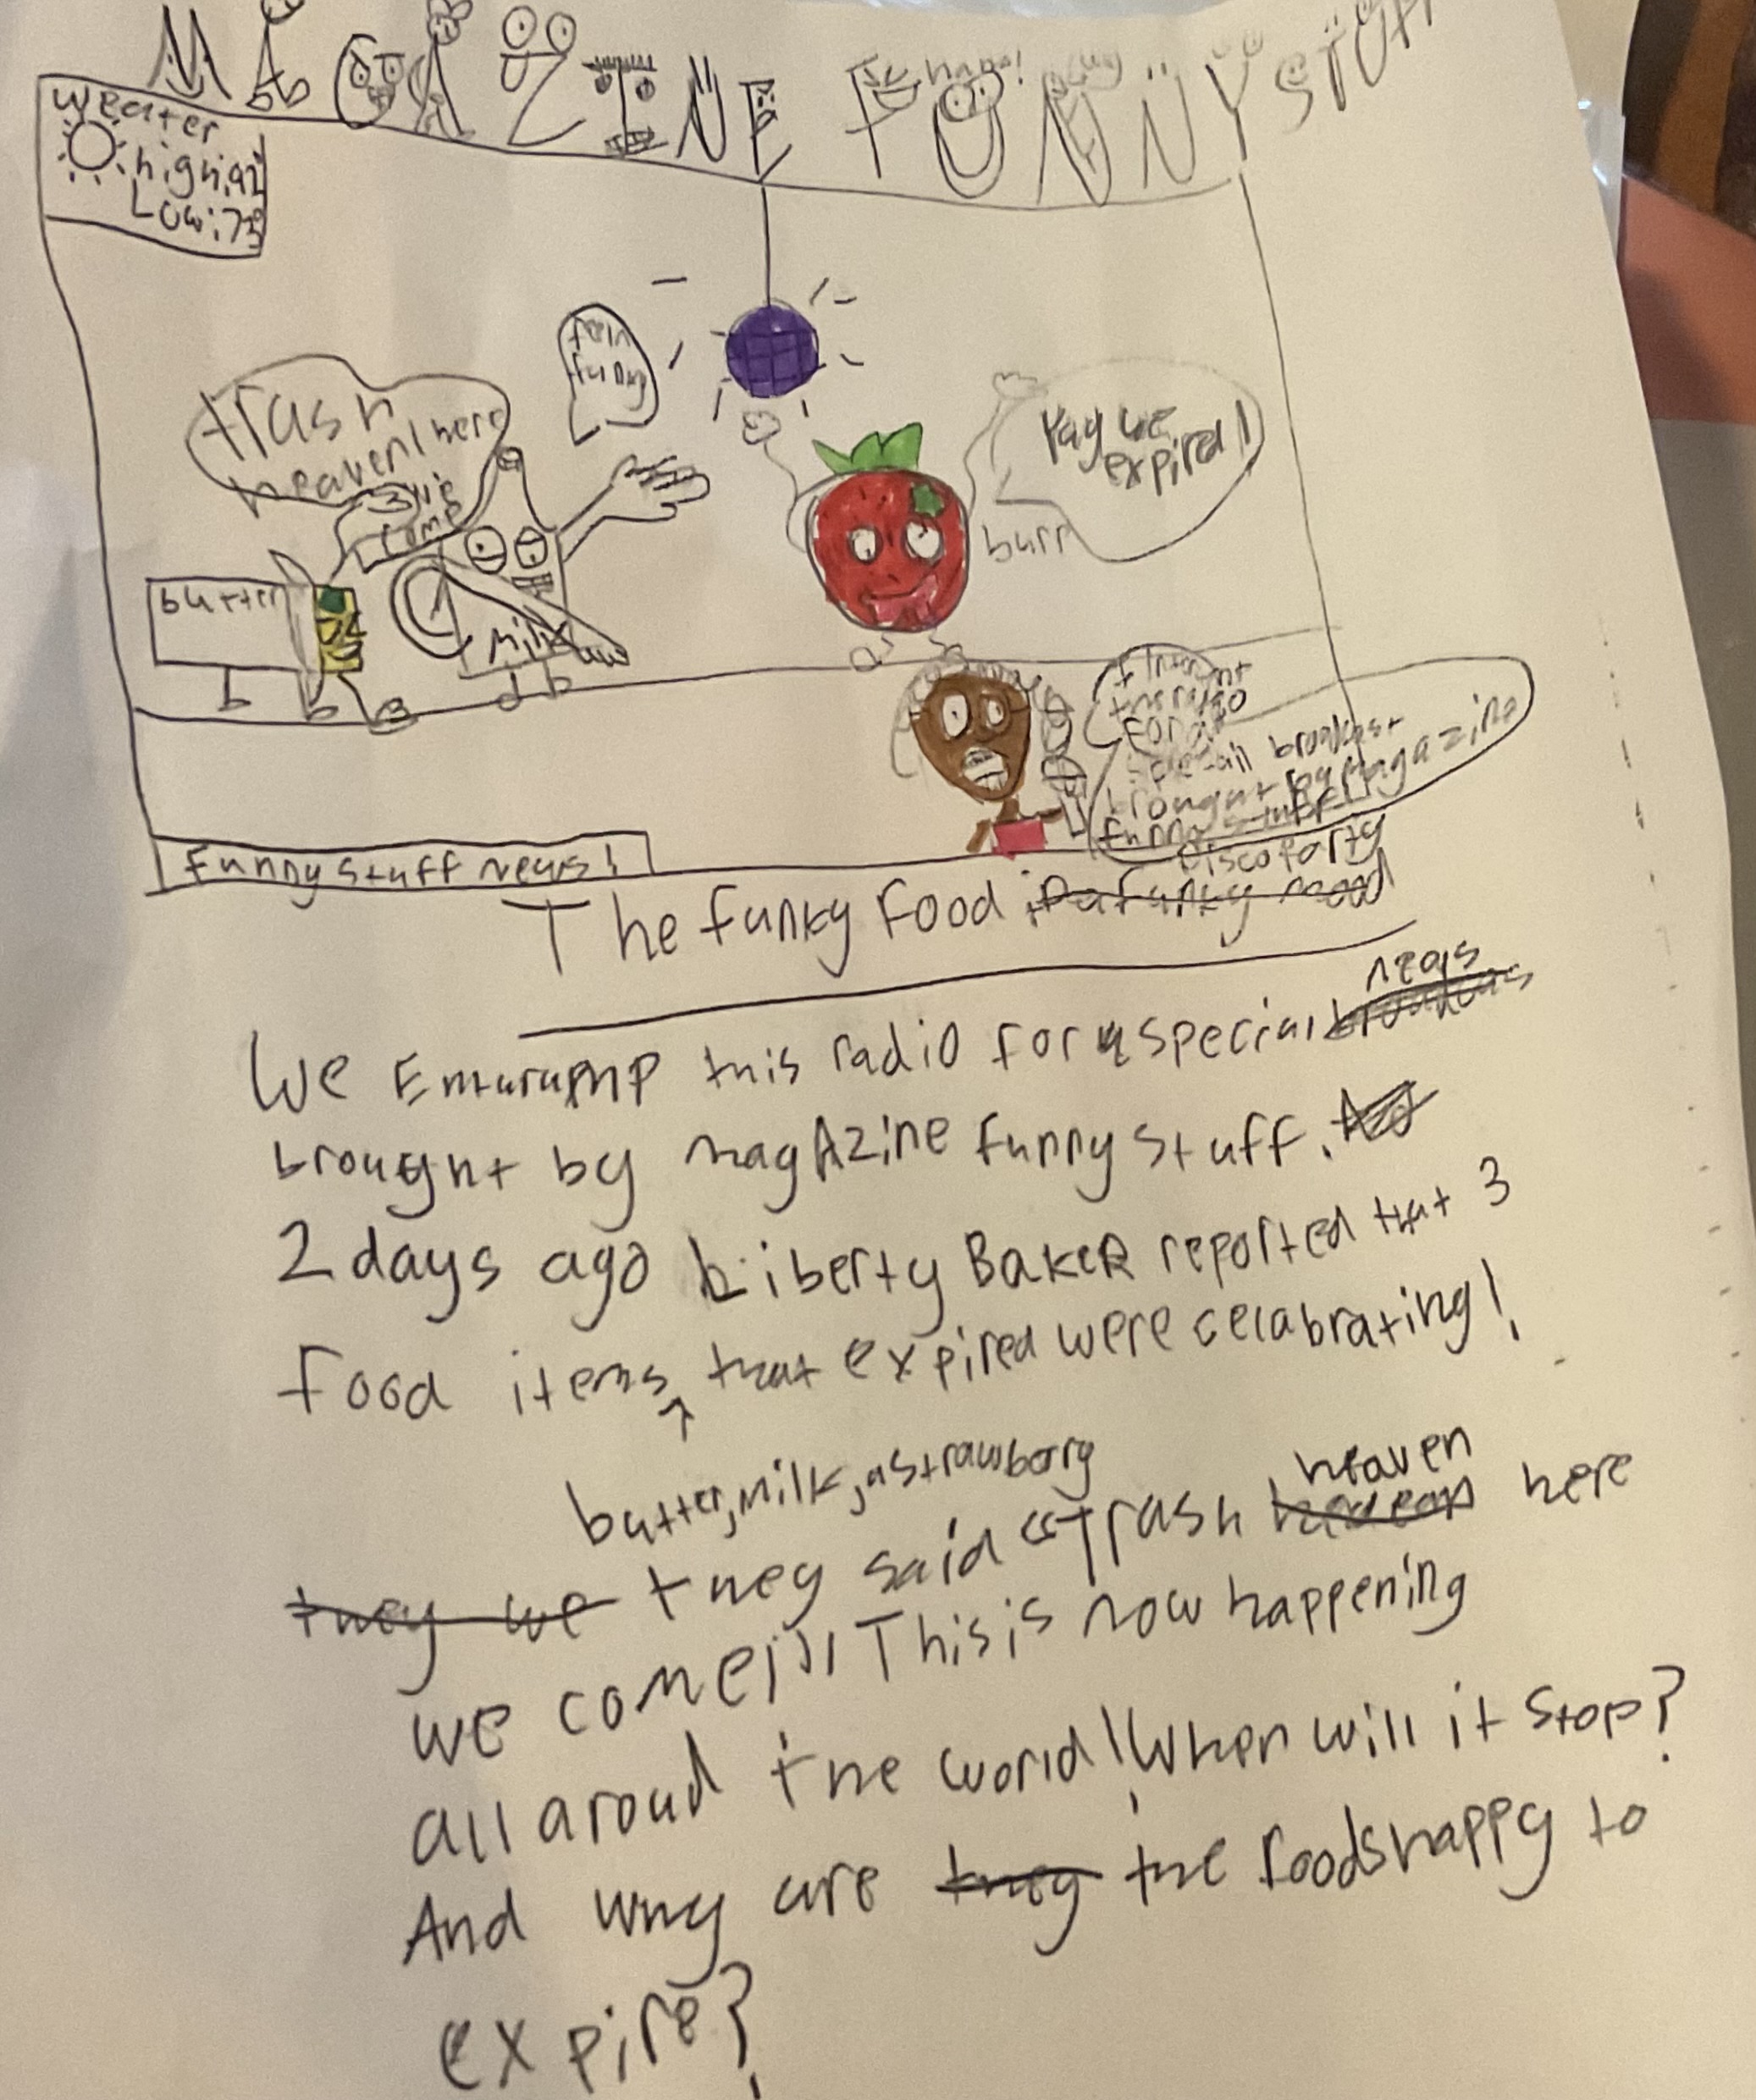 MAGAZINE FUNNY STUFF
haha!
Weater
high:92
Low:73
feelin
funky
trash
heaven here
we
come
Yay we
expired!
burr
butter
Milk
I Interupt
this radio
For a
special brodkast
brought by Magazine
funny stuff
Funny Stuff News!
disco Party
The funky Food in a funky mood
news
We Enturupnp this radio for a special
brought by magAzine funny Stuff.
2 days ago Liberty BakeR reported that 3
Food items that expired were celabrating!
butter, milk, a strawberry
heaven
they we they said "Trash here
we come!" This is now happening
all aroud the world! When will it stop?
And why are they the foods happy to
expire?